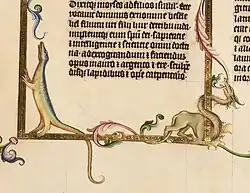 Dixitq; moyses ad filios israhel.
uocauit dominus ex nomine besele
hel filium uri filii hur de tribu iuda
impleuitq; eum spu dei sapientie
⁊ intelligentie ⁊ scientie omni doctri
na. ad excogitandum ⁊ faciendum
opus in auro ⁊ argento ⁊ ere. sculpen
disq; lapidibus ⁊ opere carpentario.